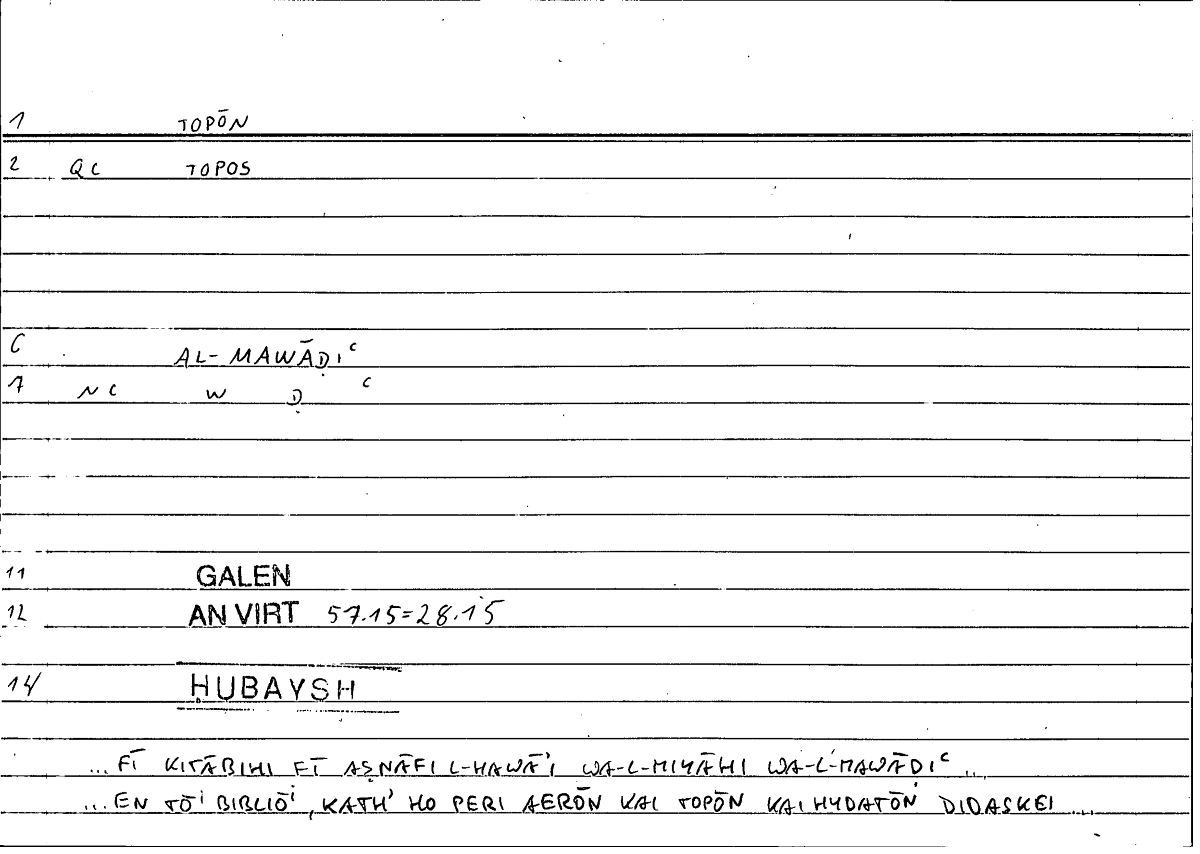 1 TOPŌN
2 QC TOPOS
6 AL-MAWĀḌIʿ
7 NC W Ḍ ʿ
11 GALEN
12 AN VIRT 57.15=28.15
14 ḤUBAYSH
... FĪ KITĀBIHI FĪ AṢNĀFI L-HAWĀʾI WA-L-MIYĀHI WA-L-MAWĀḌIʿ ...
... EN TŌⁱ BIBLIŌⁱ, KATH' HO PERI AERŌN KAI TOPŌN KAI HYDATŌN DIDASKEI ...